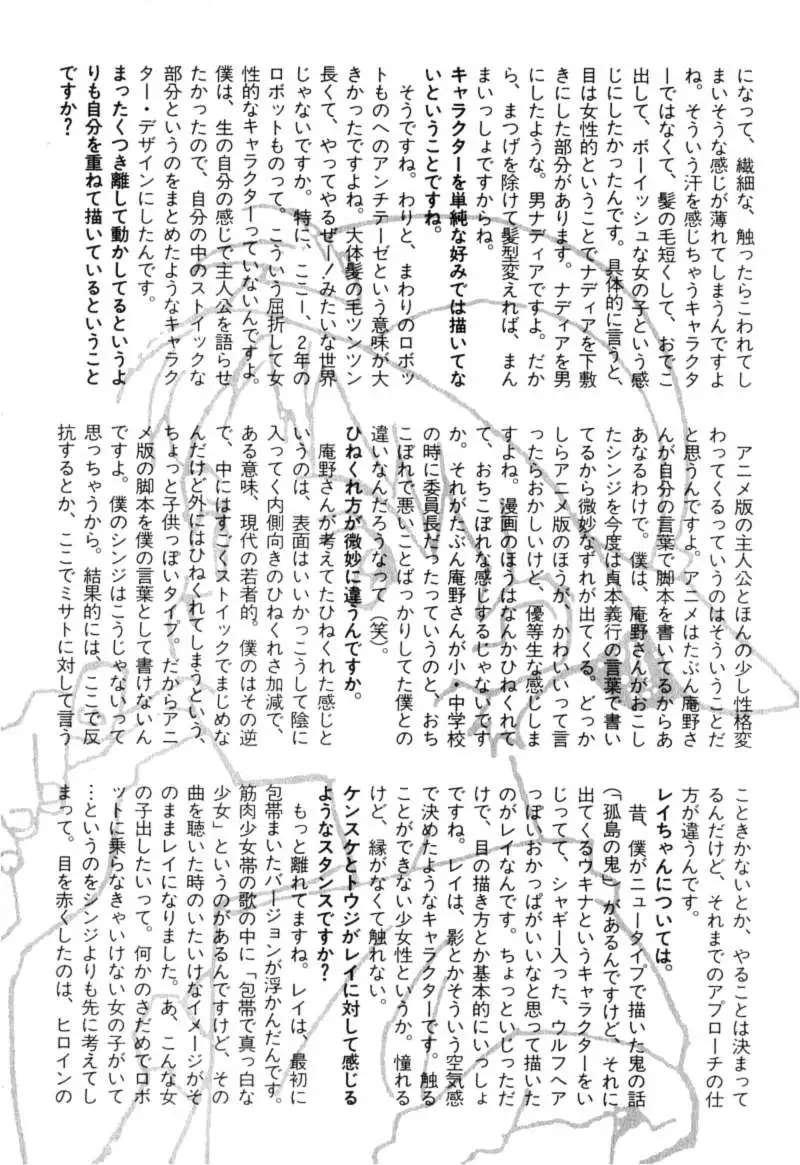 になって、繊細な、触ったらこわれてし
まいそうな感じが薄れてしまうんですよ
ね。そういう汗を感じちゃうキャラクタ
ーではなくて、髪の毛短くして、おでこ
出して、ボーイッシュな女の子という感
じにしたかったんです。具体的に言うと、
目は女性的ということでナディアを下敷
きにした部分があります。ナディアを男
にしたような。男ナディアですよ。だか
ら、まつげを除けて髪型変えれば、まん
まいっしょですからね。
キャラクターを単純な好みでは描いてな
いということですね。
そうですね。わりと、まわりのロボッ
トものへのアンチテーゼという意味が大
きかったですよね。大体髪の毛ツンツン
長くて、やってやるぜー!みたいな世界
じゃないですか。特に、ここ1、2年の
ロボットものって。こういう屈折して女
性的なキャラクターっていないんですよ。
僕は、生の自分の感じで主人公を語らせ
たかったので、自分の中のストイックな
部分というのをまとめたようなキャラク
ター・デザインにしたんです。
まったくつき離して動かしてるというよ
りも自分を重ねて描いているということ
ですか?
アニメ版の主人公とほんの少し性格変
わってくるっていうのはそういうことだ
と思うんですよ。アニメはたぶん庵野さ
んが自分の言葉で脚本を書いてるからあ
あなるわけで。僕は、庵野さんがおこし
たシンジを今度は貞本義行の言葉で書い
てるから微妙なずれが出てくる。どっか
しらアニメ版のほうが、かわいいって言
ったらおかしいけど、優等生な感じしま
すよね。漫画のほうはなんかひねくれて
て、おちこぼれな感じするじゃないです
か。それがたぶん庵野さんが小・中学校
の時に委員長だったっていうのと、おち
こぼれで悪いことばっかりしてた僕との
違いなんだろうなって(笑)。
ひねくれ方が微妙に違うんですか。
庵野さんが考えてたひねくれた感じと
いうのは、表面はいいかっこうして陰に
入ってく内側向きのひねくれさ加減で、
ある意味、現代の若者的。僕のはその逆
で、中にはすごくストイックでまじめな
んだけど外にはひねくれてしまうという、
ちょっと子供っぽいタイプ。だからアニ
メ版の脚本を僕の言葉として書けないん
ですよ。僕のシンジはこうじゃないって
思っちゃうから。結果的には、ここで反
抗するとか、ここでミサトに対して言う
こときかないとか、やることは決まって
るんだけど、それまでのアプローチの仕
方が違うんです。
レイちゃんについては。
昔、僕がニュータイプで描いた鬼の話
(「孤島の鬼」)があるんですけど、それに
出てくるウキナというキャラクターをい
じってて、シャギー入った、ウルフヘア
っぽいおかっぱがいいなと思って描いた
のがレイなんです。ちょっといじっただ
けで、目の描き方とか基本的にいっしょ
ですね。レイは、影とかそういう空気感
で決めたようなキャラクターです。触る
ことができない少女性というか。憧れる
けど、縁がなくて触れない。
ケンスケとトウジがレイに対して感じる
ようなスタンスですか?
もっと離れてますね。レイは、最初に
包帯まいたバージョンが浮かんだんです。
筋肉少女帯の歌の中に「包帯で真っ白な
少女」というのがあるんですけど、その
曲を聴いた時のいたいけなイメージがそ
のままレイになりました。あ、こんな女
の子出したいって。何かのさだめでロボ
ットに乗らなきゃいけない女の子がいて
…というのをシンジよりも先に考えてし
まって。目を赤くしたのは、ヒロインの